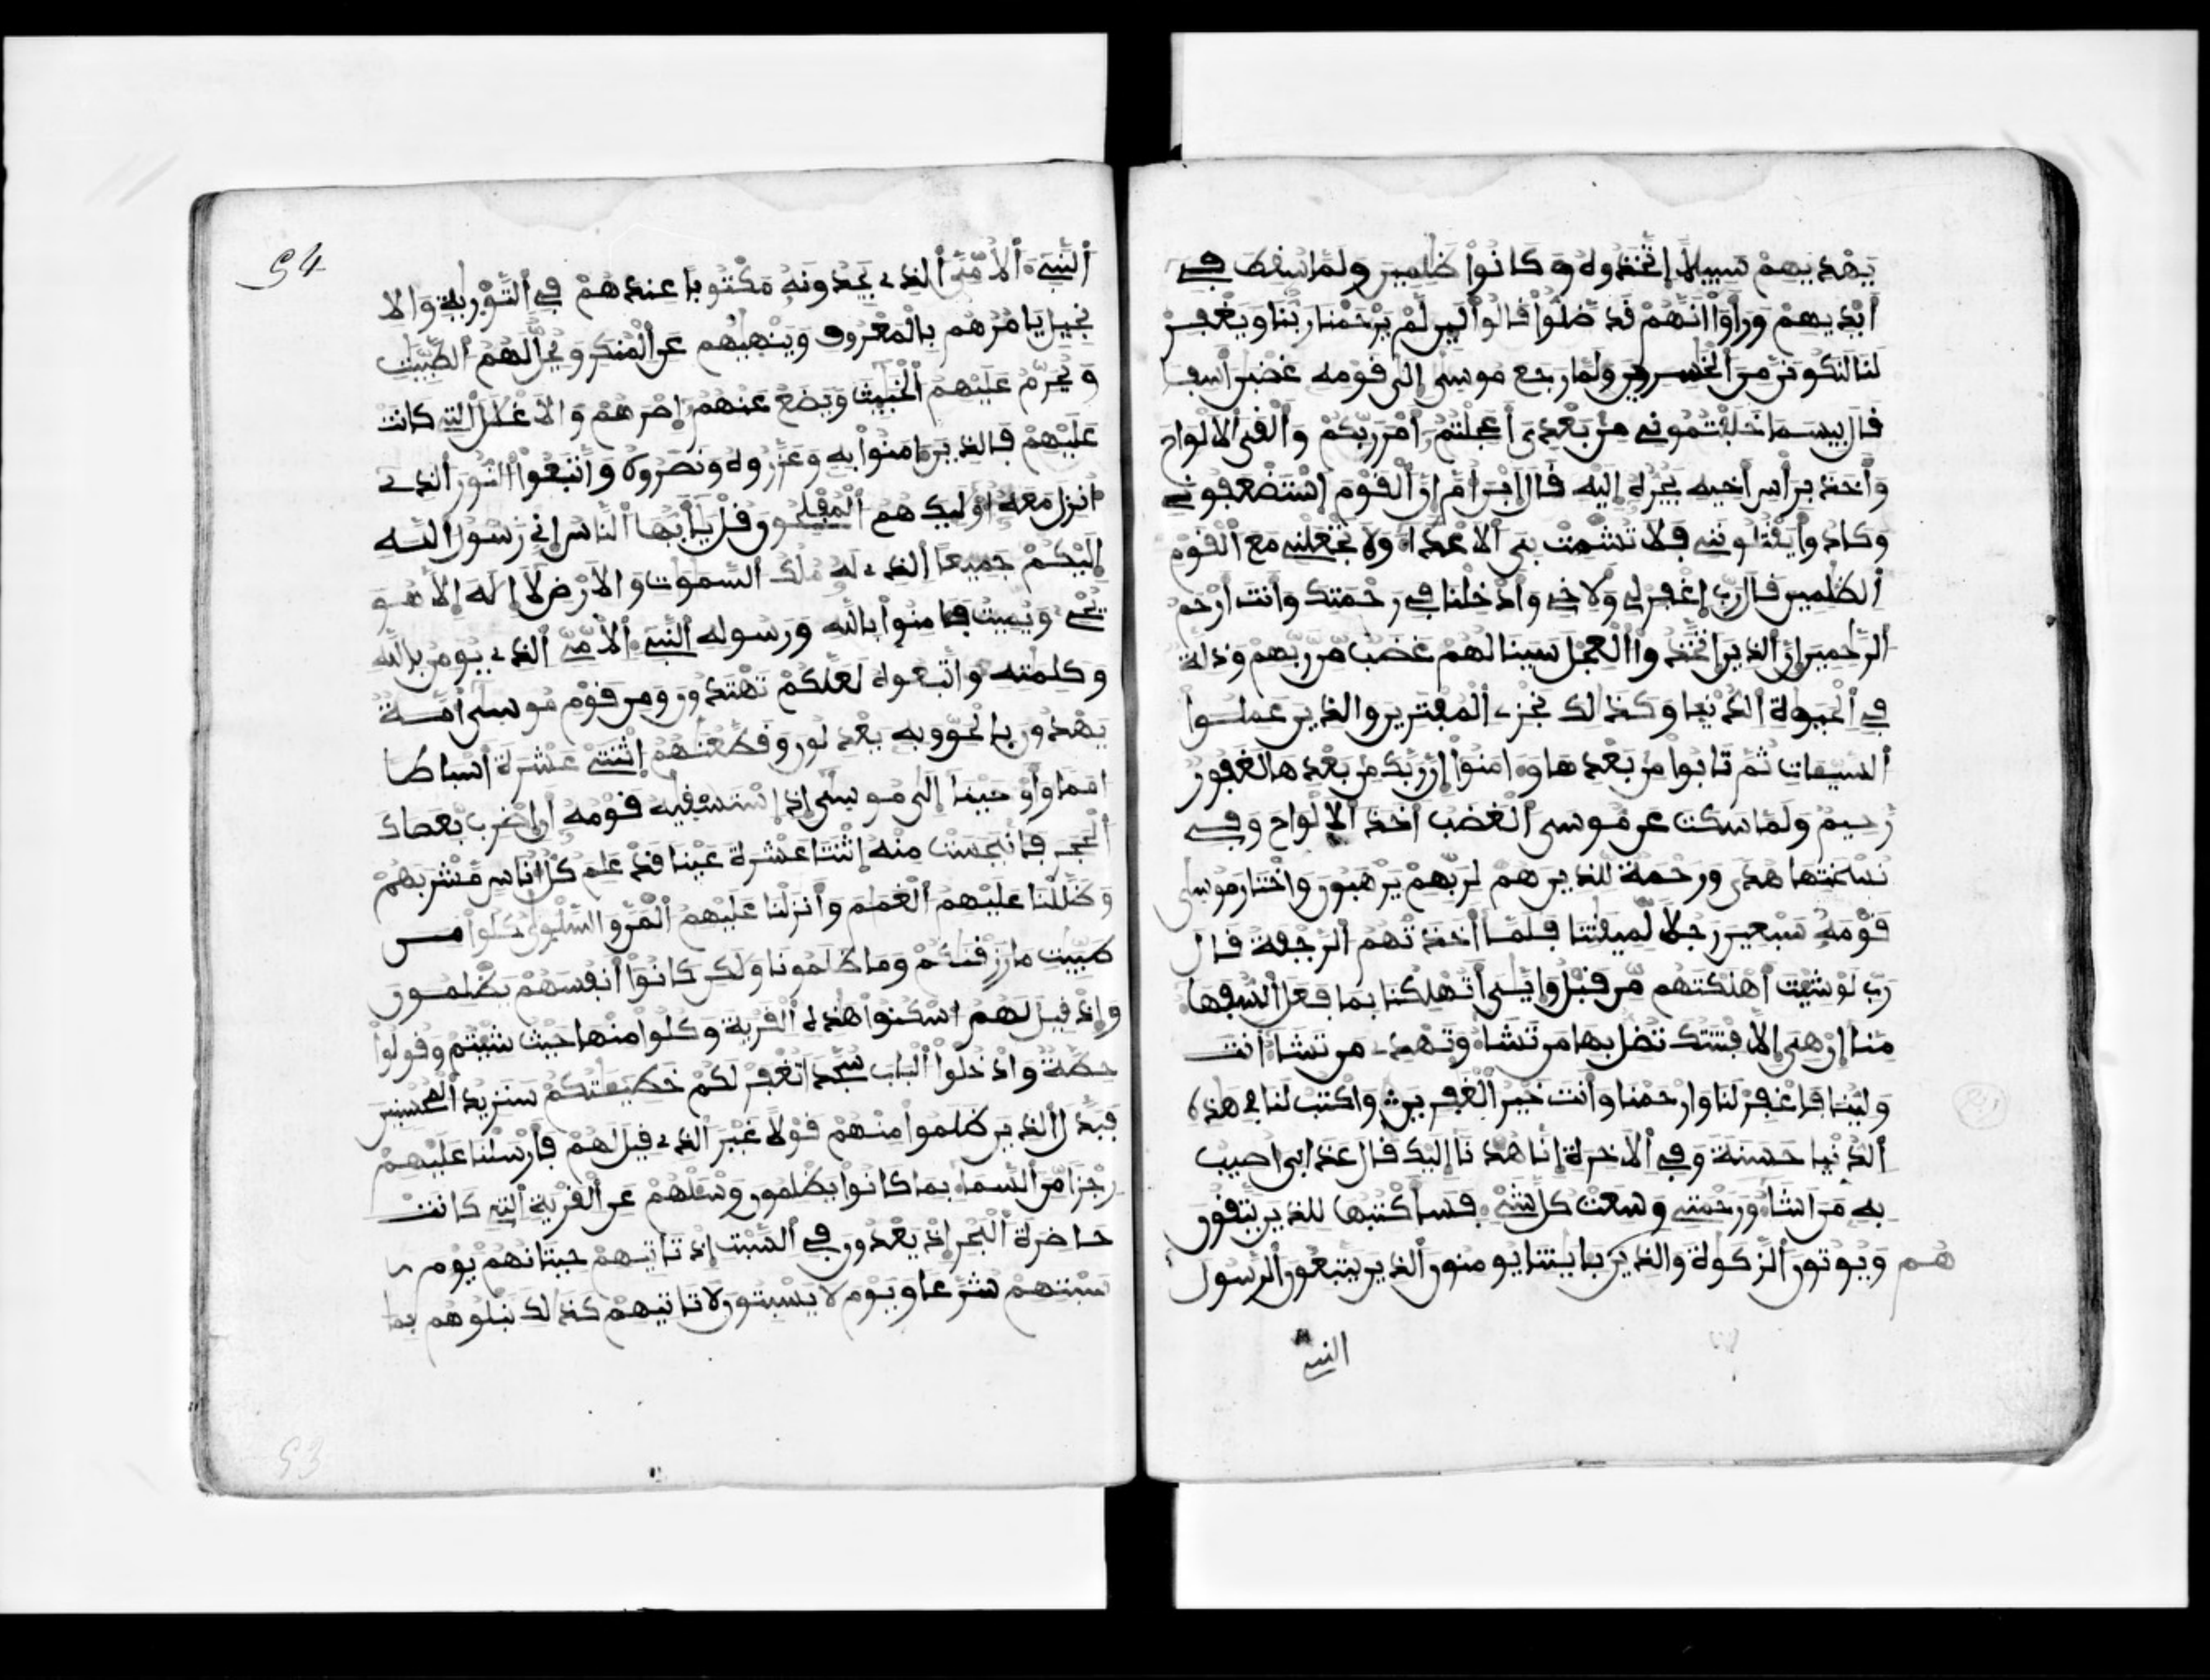 يهديهم سبيلا اتخذوه وكانوا ظلمين ولما سقط في
أيديهم ورأوا انهم قد ضلوا قالوا لين لم يرحمنا ربنا ويغفر
لنا لنكونن من الخسرين ولما رجع موسى إلى قومه غضبن أسفا
قال بيسما خلفتموني من بعدي أعجلتم أمر ربكم وألقى الالواح
وأخذ برأس أخيه يجره إليه قال ابن ام ان القوم استضعفوني
وكادوا يقتلونني فلا تشمت بي الاعداء ولا تجعلني مع القوم
الظلمين قال رب اغفر لي ولاخي وادخلنا في رحمتك وانت ارحم
الرحمين ان الذين اتخذوا العجل سينالهم غضب من ربهم وذلة
في الحيوة الدنيا وكذلك نجزي المفترين والذين عملوا
السيئات ثم تابوا من بعدها وءامنوا ان ربك من بعدها لغفور
رحيم ولما سكت عن موسى الغضب اخذ الالواح وفي
نسختها هدى ورحمة للذين هم لربهم يرهبون واختار موسى
قومه سبعين رجلا لميقتنا فلما أخذتهم الرجفة قال
رب لو شيت أهلكتهم من قبل وايى أتهلكنا بما فعل السفها
منا ان هي إلا فتنتك تضل بها من تشاء وتهدي من تشاء أنت
ولينا فاغفر لنا وارحمنا وأنت خير الغفرين واكتب لنا في هذه
الدنيا حسنة وفي الاخرة إنا هدنا إليك قال عذابي اصيب
به من اشاء ورحمتي وسعت كل شيء فسأكتبها للذين يتقون
ويوتون الزكوة والذين هم بايتنا يومنون الذين يتبعون الرسول
هم
النبي
54
النبيء الامي الذي يجدونه مكتوبا عندهم في التورية والا
نجيل يامرهم بالمعروف وينهيهم عن المنكر ويحل لهم الطيبت
ويحرم عليهم الخبيث ويضع عنهم إصرهم والاغلل التي كانت
عليهم فالذين ءامنوا به وعزروه ونصروه واتبعوا النور الذي
انزل معه اوليك هم المفلحون قل يأيها الناس اني رسول الله
إليكم جميعا الذي له ملك السموات والارض لا اله الا هو
يحي ويميت فامنوا بالله ورسوله النبيء الامي الذي يومن بالله
وكلمته واتبعوه لعلكم تهتدون ومن قوم موسى أمة
يهدون بالحق وبه يعدلون وقطعنهم اثنتي عشرة أسباطا
امما وأوحينا إلى موسى إذ استسقيه قومه أن اضرب بعصاك
الحجر فانبجست منه اثنتا عشرة عينا قد علم كل اناس مشربهم
وظللنا عليهم الغمم وأنزلنا عليهم المن والسلوى كلوا من
طيبت ما رزقنكم وما ظلمونا ولكن كانوا أنفسهم يظلمون
وإذ قيل لهم اسكنوا هذه القرية وكلوا منها حيث شيتم وقولوا
حطة وادخلوا الباب سجدا تغفر لكم خطيئتكم سنزيد المحسنين
فبدل الذين ظلموا منهم قولا غير الذي قيل لهم فأرسلنا عليهم
رجزا من السماء بما كانوا يظلمون وسئلهم عن القرية التي كانت
حاضرة البحر إذ يعدون في السبت إذ تاتيهم حيتانهم يوم
سبتهم شرعا ويوم لا يسبتون لا تاتيهم كذلك نبلوهم بما
53